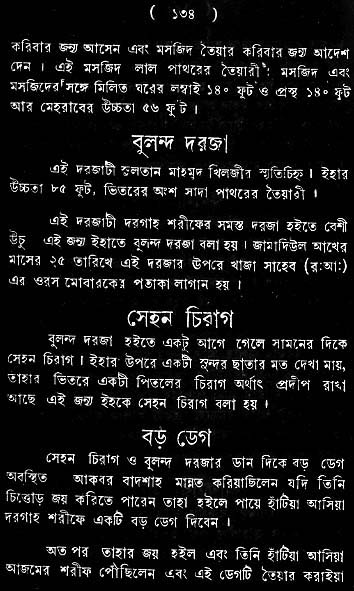 ( ১৩৪ )
করিবার জন্য আসেন এবং মসজিদ তৈয়ার করিবার জন্য আদেশ
দেন । এই মসজিদ লাল পাথরের তৈয়ারী । মসজিদ এবং
মসজিদের সঙ্গে মিলিত ঘরের লম্বাই ১৪০ ফুট ও প্রস্থ ১৪০ ফুট
আর মেহরাবের উচ্চতা ৫৬ ফুট ।
বুলন্দ দরজা
এই দরজাটী সুলতান মাহমুদ খিলজীর স্মৃতিচিহ্ন । ইহার
উচ্চতা ৮৫ ফুট, ভিতরের অংশ সাদা পাথরের তৈয়ারী ।
এই দরজাটী দরগাহ শরীফের সমস্ত দরজা হইতে বেশী
উঁচু এই জন্য ইহাতে বুলন্দ দরজা বলা হয় । জামাদিউল আখের
মাসের ২৫ তারিখে এই দরজার উপরে খাজা সাহেব (র:আ:)
এর ওরস মোবারকের পতাকা লাগান হয় ।
সেহন চিরাগ
বুলন্দ দরজা হইতে একটু আগে গেলে সামনের দিকে
সেহন চিরাগ । ইহার উপরে একটী সুন্দর ছাতার মত দেখা যায়,
তাহার ভিতরে একটী পিতলের চিরাগ অর্থাৎ প্রদীপ রাখা
আছে এই জন্য ইহকে সেহন চিরাগ বলা হয় ।
বড় ডেগ
সেহন চিরাগ ও বুলন্দ দরজার ডান দিকে বড় ডেগ
অবস্থিত আকবর বাদশাহ মান্নত করিয়াছিলেন যদি তিনি
চিত্তোড় জয় করিতে পারেন তাহা হইলে পায়ে হাঁটিয়া আসিয়া
দরগাহ শরীফে একটি বড় ডেগ দিবেন ।
অত পর তাহার জয় হইল এবং তিনি হাঁটিয়া আসিয়া
আজমের শরীফ পৌছিলেন এবং এই ডেগটি তৈয়ার করাইয়া